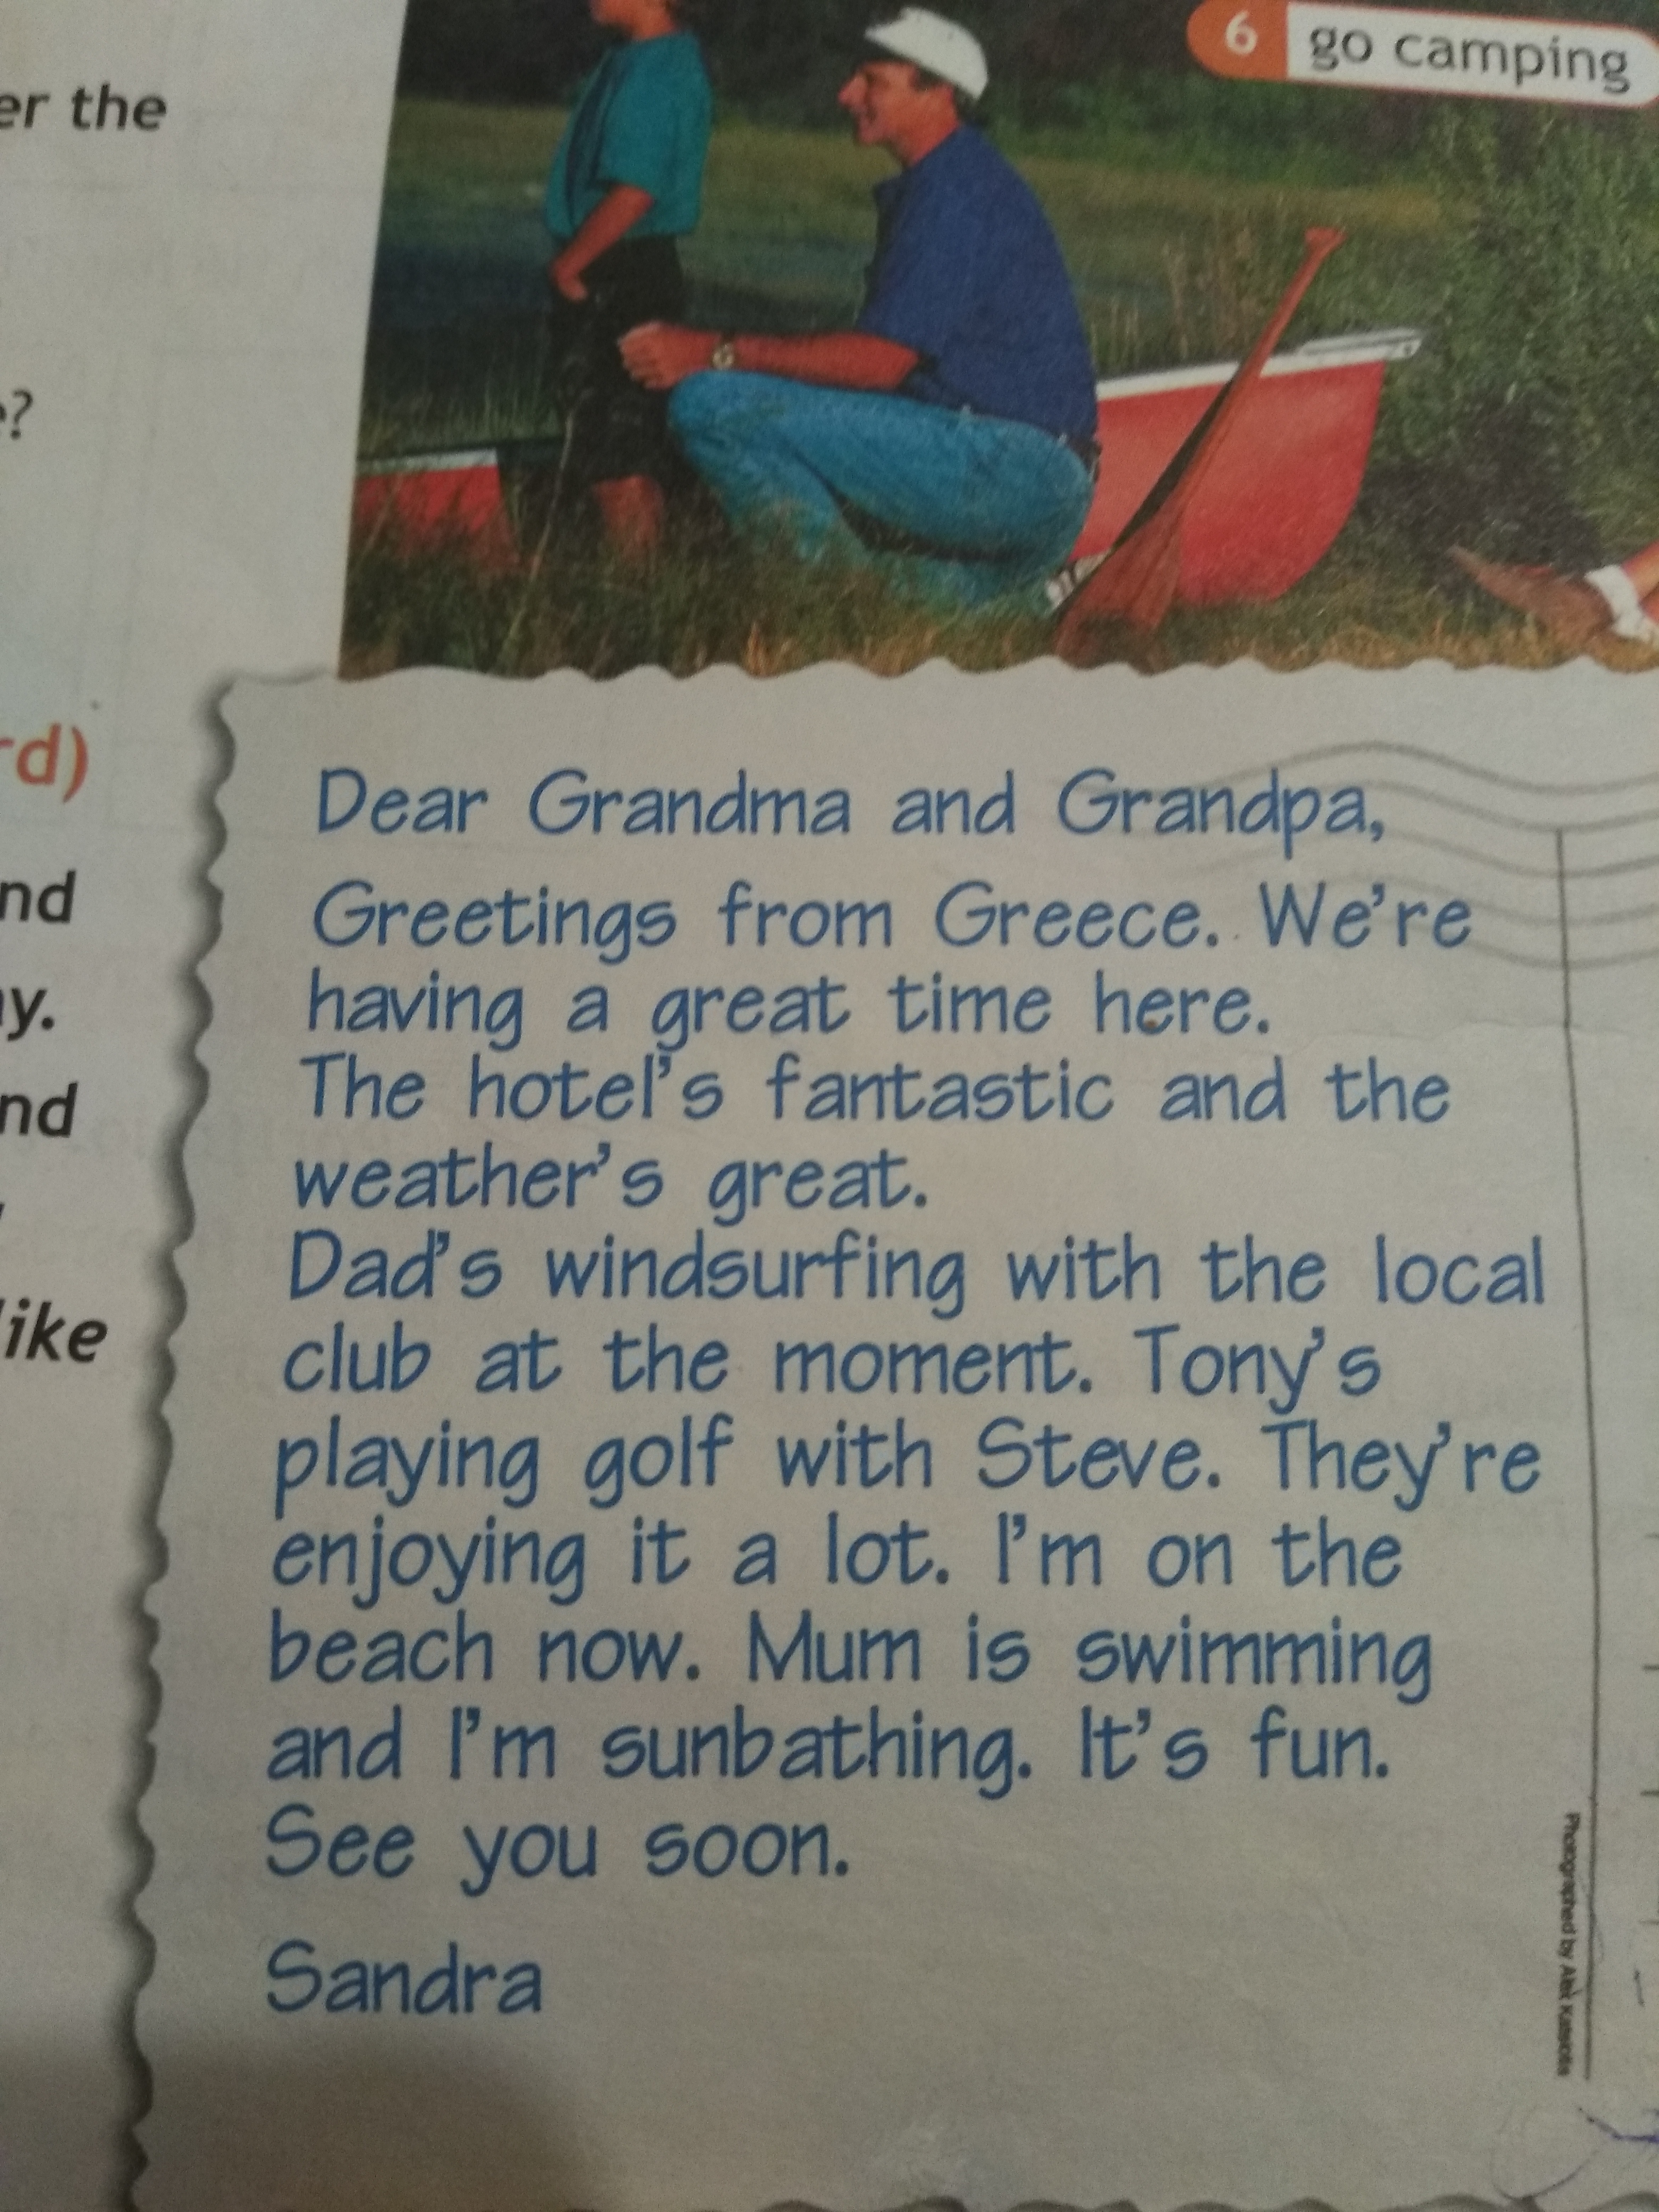 6 go camping
er the
e?
rd)
nd
y.
nd
like
Dear Grandma and Grandpa,
Greetings from Greece. We're
having a great time here.
The hotel's fantastic and the
weather's great.
Dad's windsurfing with the local
club at the moment. Tony's
playing golf with Steve. They're
enjoying it a lot. I'm on the
beach now. Mum is swimming
and I'm sunbathing. It's fun.
See you soon.
Sandra
Photographed by